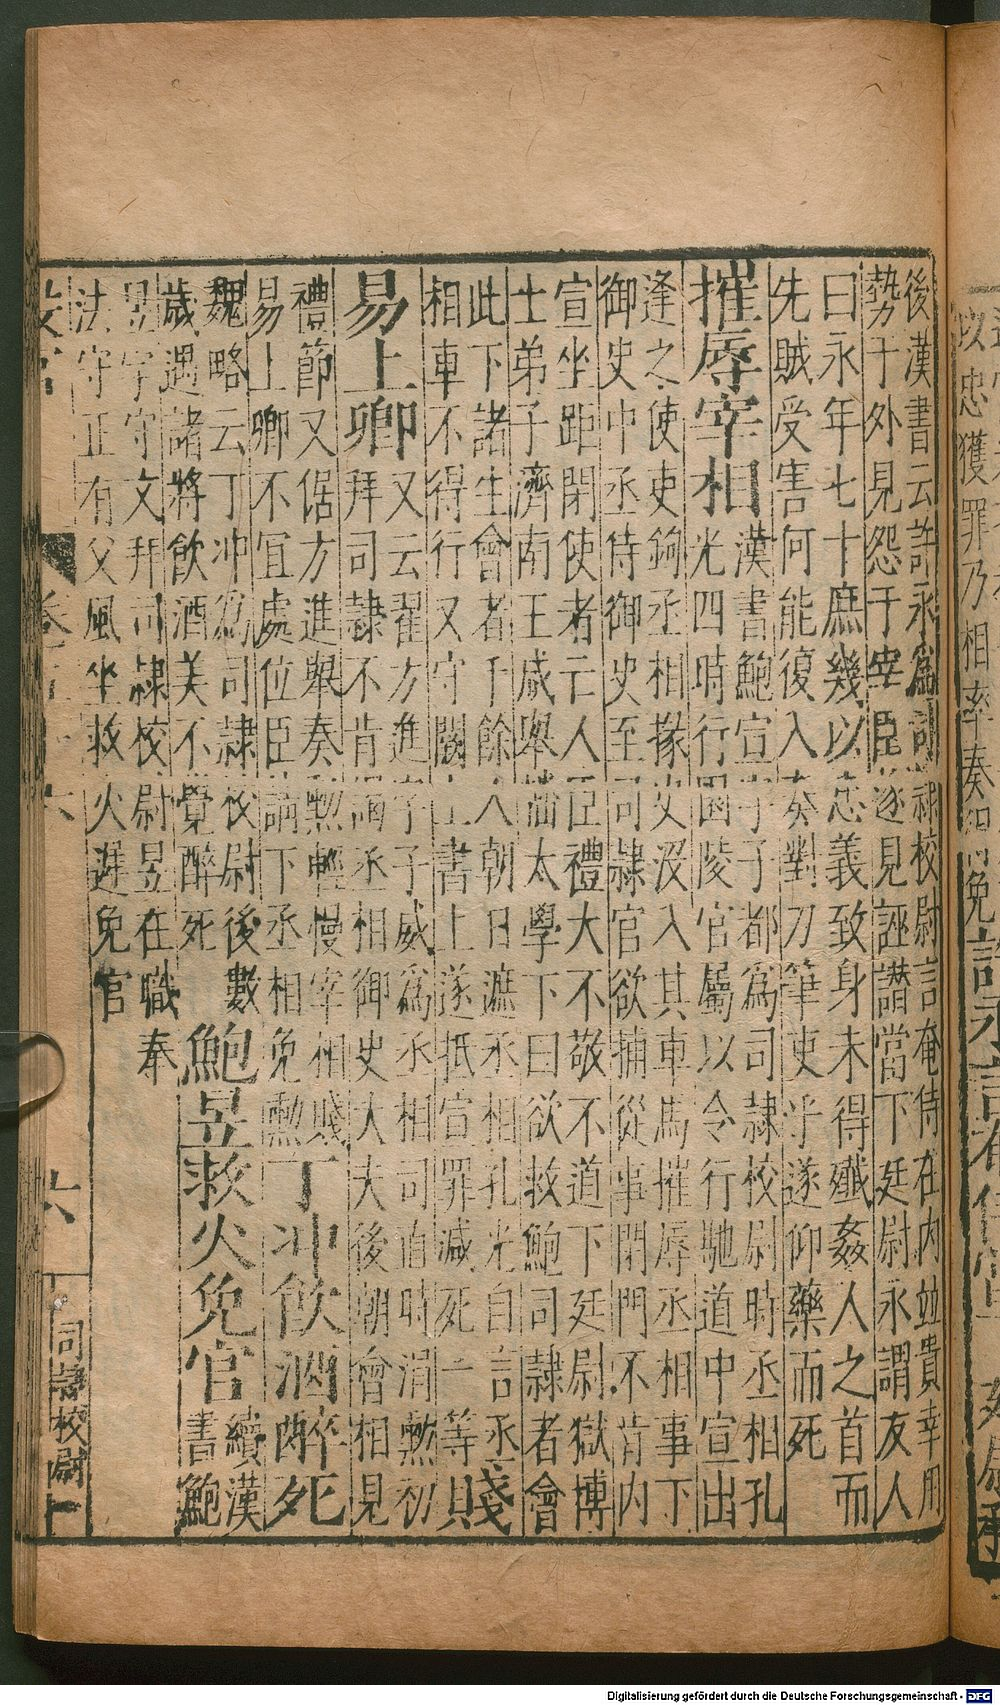 後漢書云許永爲司隷校尉言奄侍在內並貴幸用
勢于外見怨于宰臣遂見誣譖當下廷尉永謂友人
曰永年七十庶幾以忠義致身未得殲姦人之首而
先賊受害何能復入奏對刀筆吏乎遂仰藥而死
摧辱宰相
漢書鮑宣字子都爲司隷校尉時丞相孔
光四時行園陵官屬以令行馳道中宣出
逢之使吏鉤丞相掾史沒入其車馬摧辱丞相事下
御史中丞侍御史至司隷官欲捕從事閉門不肯内
宣坐距閉使者亡人臣禮大不敬不道下廷尉獄博
士弟子濟南王咸舉幡太學下曰欲救鮑司隷者會
此下諸生會者千餘人朝日遮丞相孔光自言丞
相車不得行又守闕上書上遂抵宣罪減死一等
賤
易上卿
又云翟方進字子威爲丞相司直時涓勲初
拜司隷不肯謁丞相御史大夫後朝會相見
禮節又倨方進舉奏勲輕慢宰相賤
易上卿不宜處位臣請下丞相免勲
丁冲飲酒醉死
魏略云丁冲爲司隷校尉後數
歲遇諸將飲酒美不覺醉死
鮑昱救火免官
續漢
書鮑
昱字守文拜司隷校尉昱在職奉
法守正有父風坐救火遲免官
六
司隷校尉
Digitalisierung gefördert durch die Deutsche Forschungsgemeinschaft - DFG